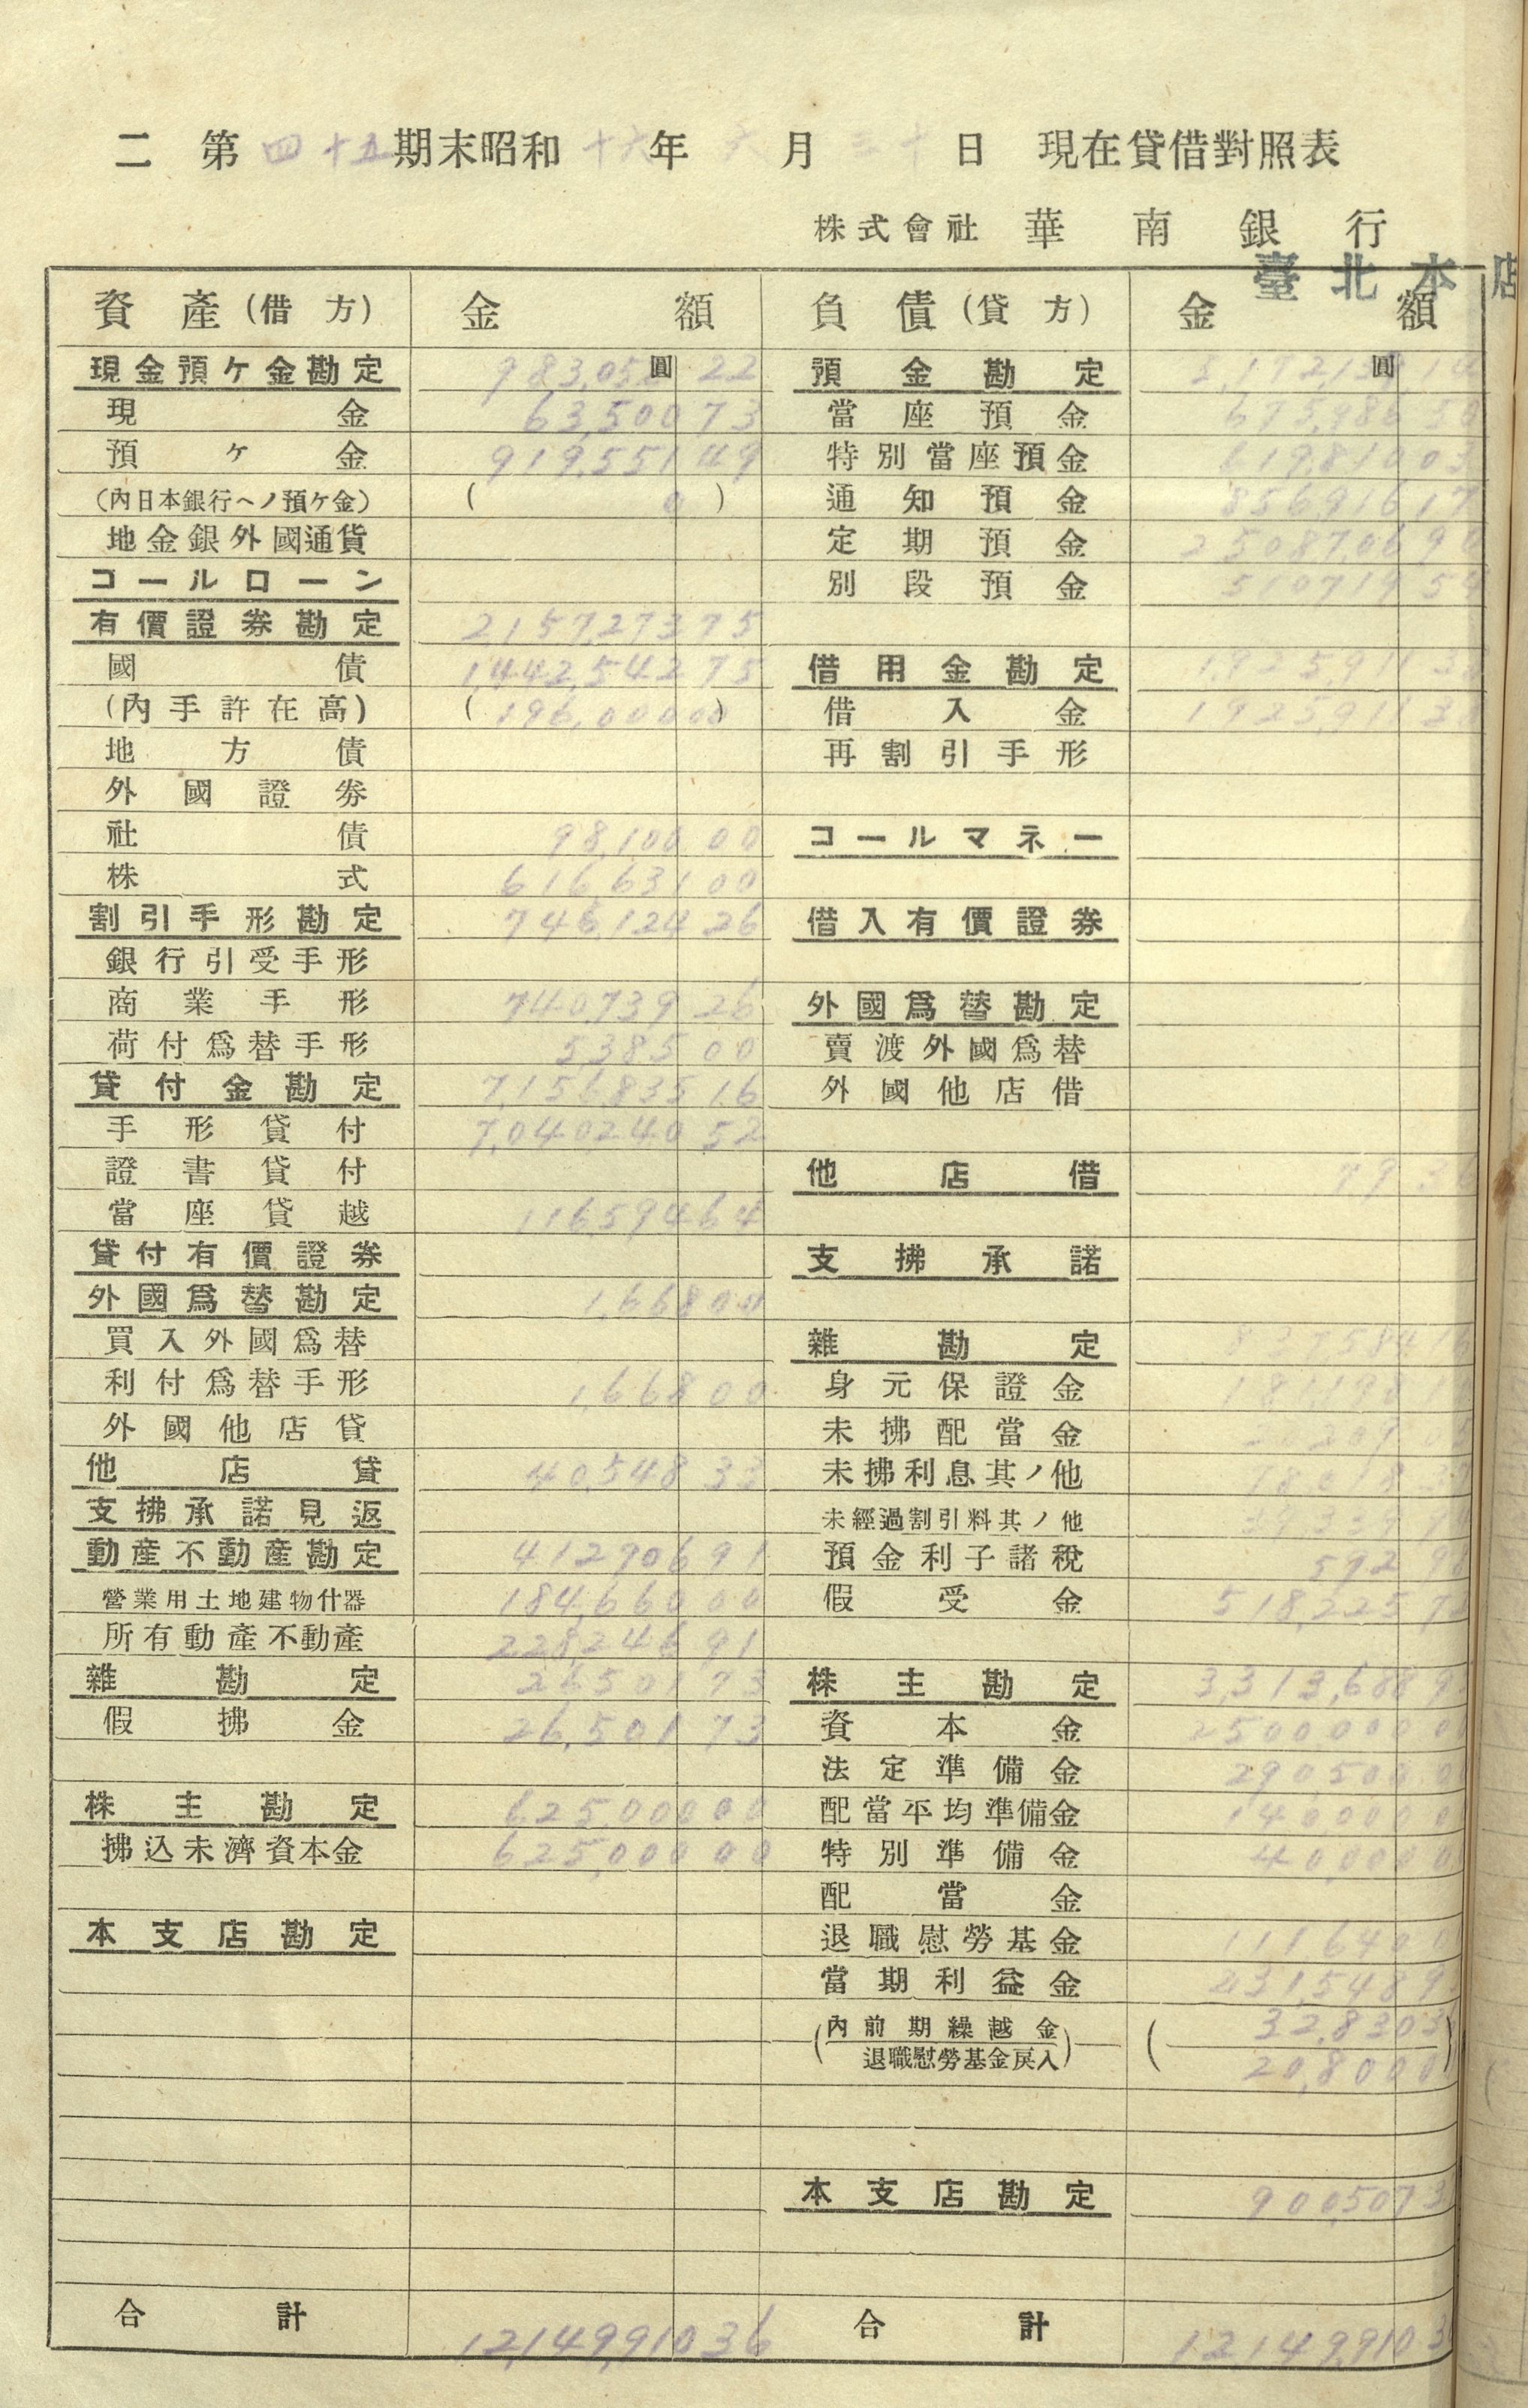 二 第 四十五 期末昭和 十六 年 六 月 三十 日 現在貸借對照表
株式會社 華南銀行
臺北本店
資產(借方) 金額 負債(貸方) 金額
現金預ケ金勘定 983,052圓22 預金勘定 5,172,139圓14
現金 63,500 73 當座預金 675,986 50
預ケ金 919,551 49 特別當座預金 619,810 03
(內日本銀行ヘノ預ケ金) ( 0 ) 通知預金 856,916 17
地金銀外國通貨 定期預金 2,508,706 90
コールローン 別段預金 510,719 54
有價證券勘定 2,157,273 75
國債 1,442,542 75 借用金勘定 1,925,911 38
(內手許在高) ( 196,000 00 ) 借入金 1,925,911 38
地方債 再割引手形
外國證券
社債 98,100 00 コールマネー
株式 616,631 00
割引手形勘定 746,124 26 借入有價證券
銀行引受手形
商業手形 740,739 26 外國爲替勘定
荷付爲替手形 5,385 00 賣渡外國爲替
貸付金勘定 7,156,835 16 外國他店借
手形貸付 7,040,240 52
證書貸付 他店借 79 36
當座貸越 116,594 64
貸付有價證券 支拂承諾
外國爲替勘定 1,668 00
買入外國爲替 雜勘定
利付爲替手形 1,668 00 身元保證金
外國他店貸 未拂配當金
他店貸 40,548 33 未拂利息其ノ他
支拂承諾見返 未經過割引料其ノ他
動產不動產勘定 412,906 91 預金利子諸稅 592 96
營業用土地建物什器 184,660 00 假受金 518,225 7
所有動產不動產 228,246 91
雜勘定 26,501 73 株主勘定 3,313,688 9
假拂金 26,501 73 資本金 2,500,000 00
法定準備金 290,500 00
株主勘定 625,000 00 配當平均準備金 140,000 0
拂込未濟資本金 625,000 00 特別準備金 40,000 0
配當金
本支店勘定 退職慰勞基金 111,640 0
當期利益金 231,548 9
(內前期繰越金 ( 32,830 3
退職慰勞基金戾入) 20,800 0 )
本支店勘定 900,507 3
合計 12,149,910 36 合計 12,149,910 3